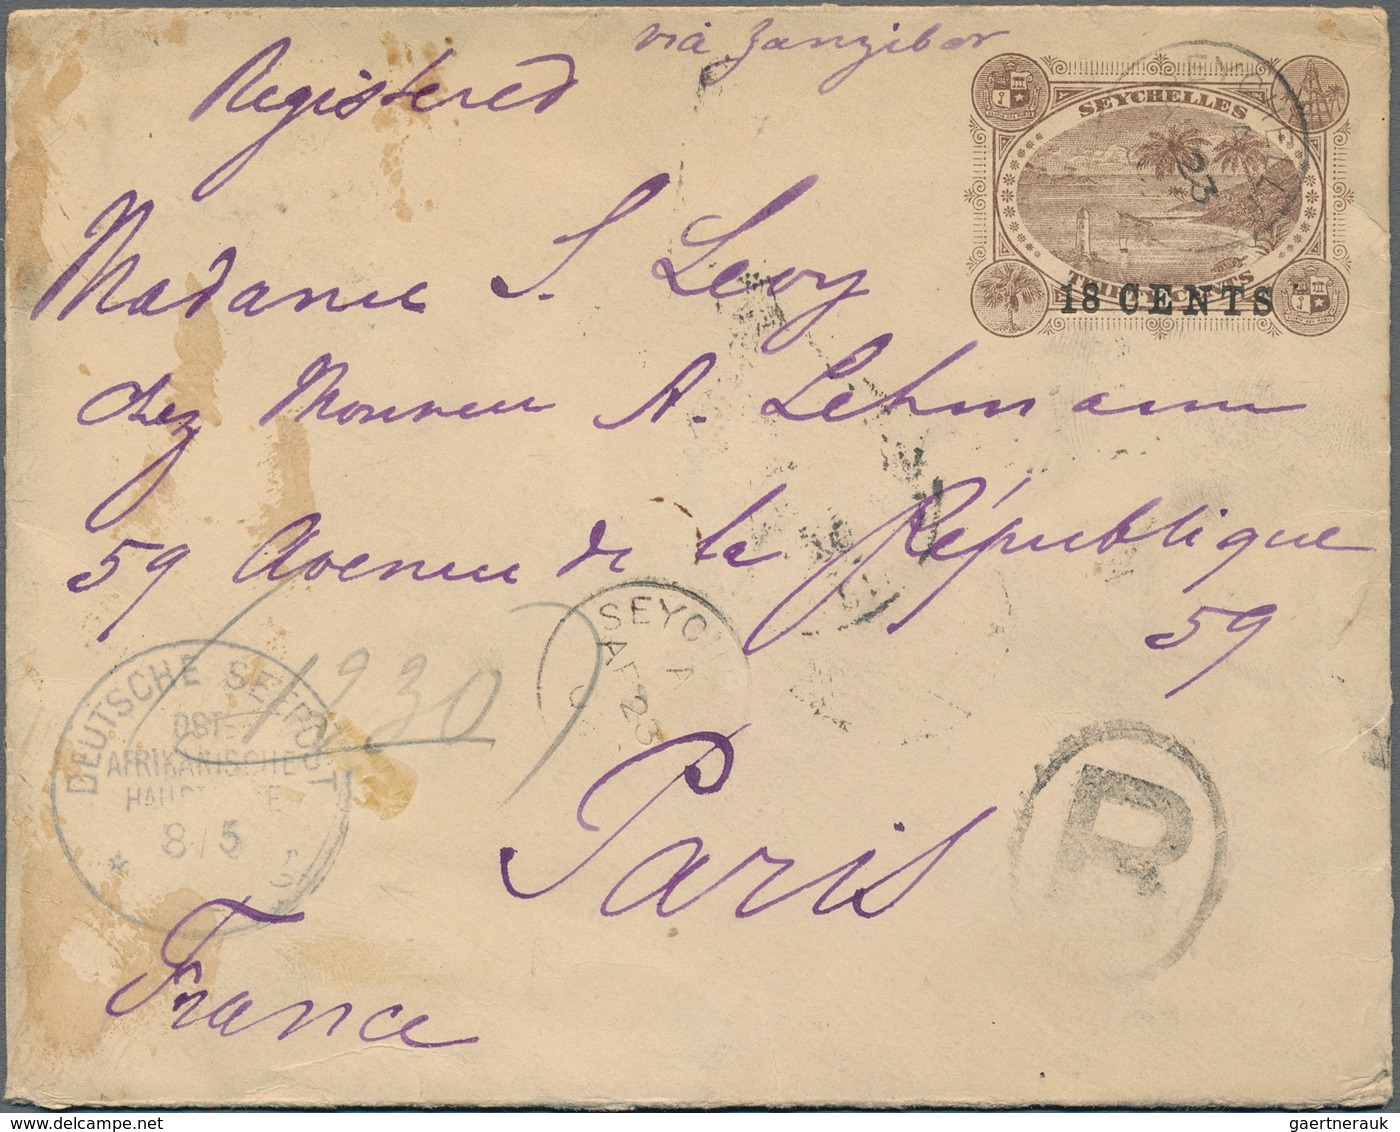 via Zanzibar
Registered
SEYCHELLES
23
THIRTY CENTS
18 CENTS
Madame S. Levy
chez Monsieur A. Lehmann
59 Avenue de la République
59
SEYCH
A
AP 23
DEUTSCHE SEEPOST
OST-
AFRIKANISCHE
HAUPT
8/5
1230
R
Paris
France
gaertnerauk@delcampe.net